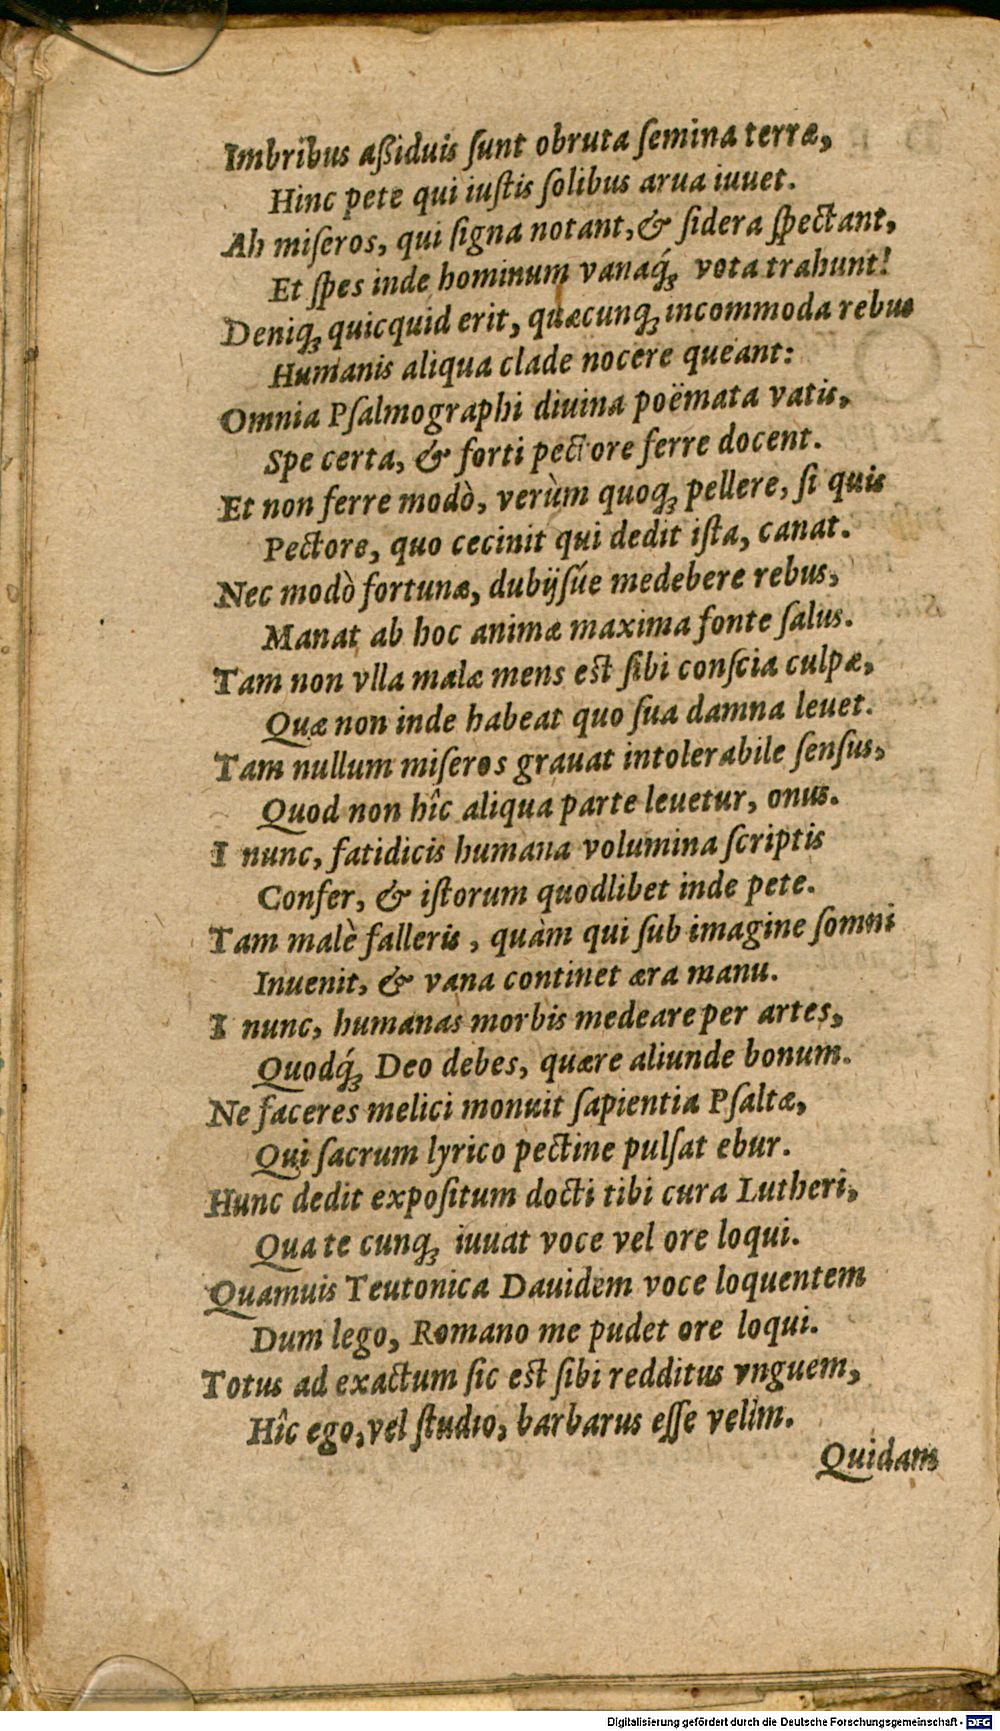 Imbribus aßiduis ſunt obruta ſemina terræ,
Hinc pete qui iuſtis ſolibus arua iuuet.
Ah miſeros, qui ſigna notant, & ſidera ſpectant,
Et ſpes inde hominum vanaq́ꝫ vota trahunt!
Deniqꝫ quicquid erit, quæcunqꝫ incommoda rebus
Humanis aliqua clade nocere queant:
Omnia Pſalmographi diuina poëmata vatis,
Spe certa, & forti pectore ferre docent.
Et non ferre modò, verùm quoqꝫ pellere, ſi quis
Pectore, quo cecinit qui dedit iſta, canat.
Nec modò fortunæ, dubijſúe medebere rebus,
Manat ab hoc animæ maxima fonte ſalus.
Tam non vlla malæ mens est ſibi conſcia culpæ,
Quæ non inde habeat quo ſua damna leuet.
Tam nullum miſeros grauat intolerabile ſenſus,
Quod non hîc aliqua parte leuetur, onus.
I nunc, fatidicis humana volumina ſcriptis
Confer, & iſtorum quodlibet inde pete.
Tam malè falleris, quàm qui ſub imagine ſomni
Inuenit, & vana continet æra manu.
I nunc, humanas morbis medeare per artes,
Quodq́ꝫ Deo debes, quære aliunde bonum.
Ne faceres melici monuit ſapientia Pſaltæ,
Qui ſacrum lyrico pectine pulſat ebur.
Hunc dedit expoſitum docti tibi cura Lutheri,
Qua te cunqꝫ iuuat voce vel ore loqui.
Quamuis Teutonica Dauidem voce loquentem
Dum lego, Romano me pudet ore loqui.
Totus ad exactum ſic est ſibi redditus vnguem,
Hîc ego, vel ſtudio, barbarus eſſe velim.
Quidam
Digitalisierung gefördert durch die Deutsche Forschungsgemeinschaft - DFG